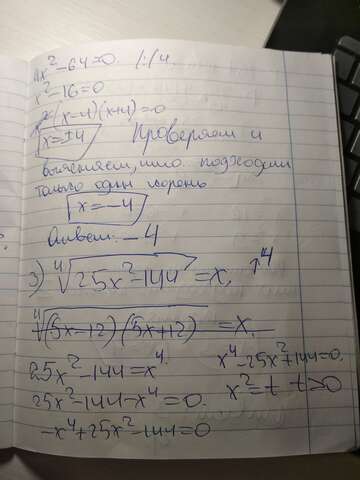 4x² - 64 = 0. |:4.
x² - 16 = 0
(x-4)(x+4) = 0
x = ±4 Проверяем и
выясняем, что подходит
только один корень
x = -4
Ответ: -4
3) ⁴√25x² - 144 = x, ↑4
⁴√(5x-12)(5x+12) = x.
25x² - 144 = x⁴. x⁴ - 25x² + 144 = 0.
25x² - 144 - x⁴ = 0. x² = t t > 0
-x⁴ + 25x² - 144 = 0